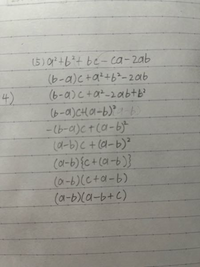 (5) a²+b²+bc-ca-2ab
(b-a)c+a²+b²-2ab
4)
(b-a)c+a²-2ab+b²
(b-a)c+(a-b)²
-(b-a)c+(a-b)²
(a-b)c+(a-b)²
(a-b){c+(a-b)}
(a-b)(c+a-b)
(a-b)(a-b+c)